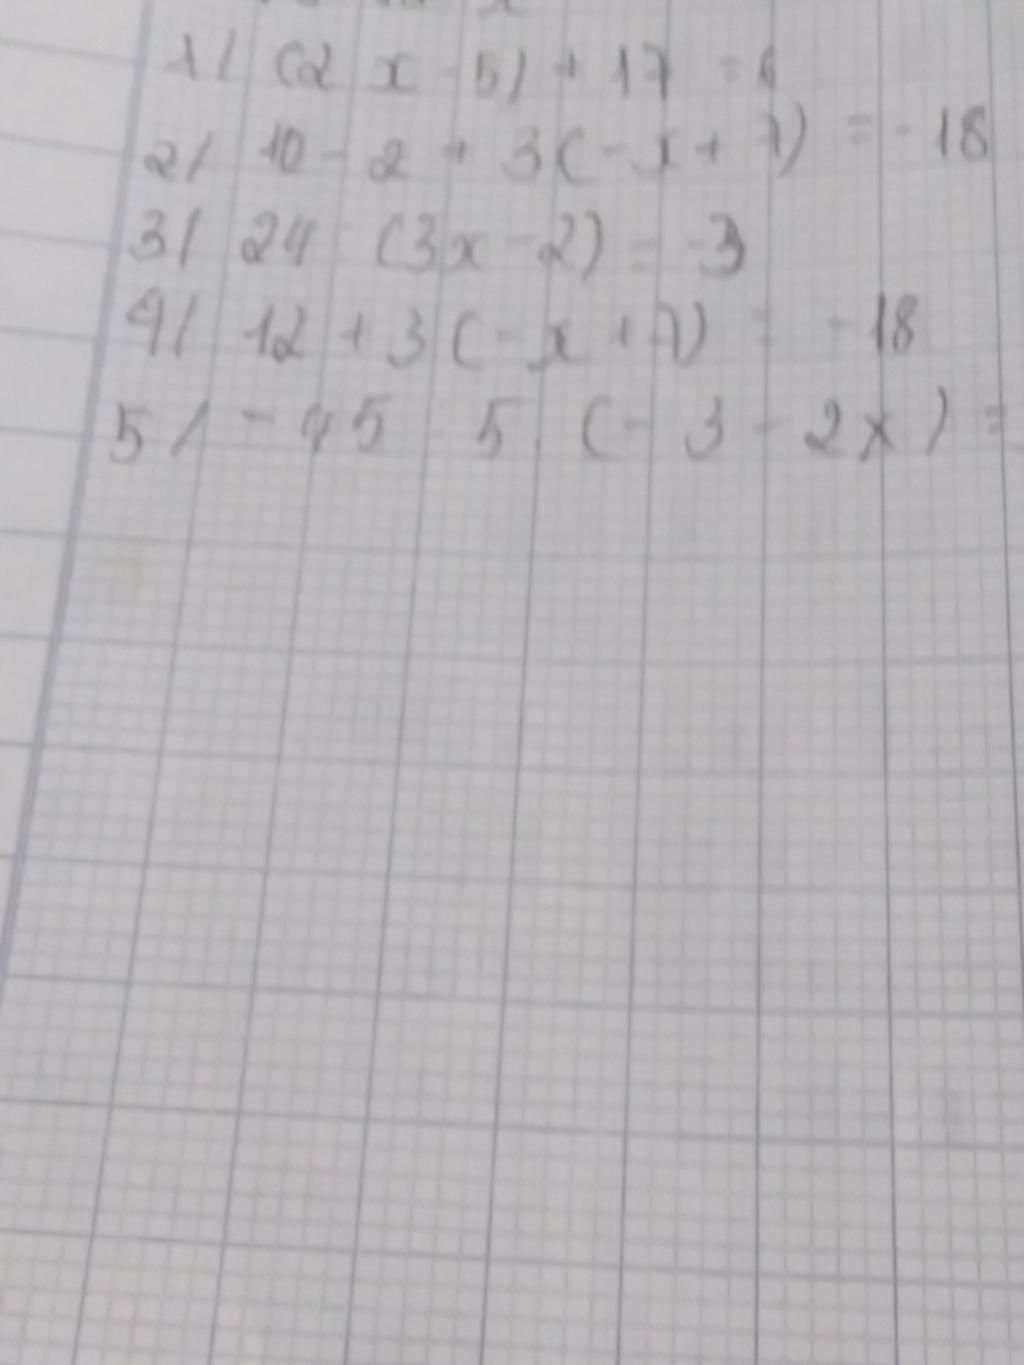 1/ (2 x - 5) + 17 = 6
2/ 10 - 2 + 3(-x + 7) = -18
3/ 24 : (3x - 2) = -3
4/ 12 + 3(-x + 7) = -18
5/ -45 : 5. (-3 - 2x) =